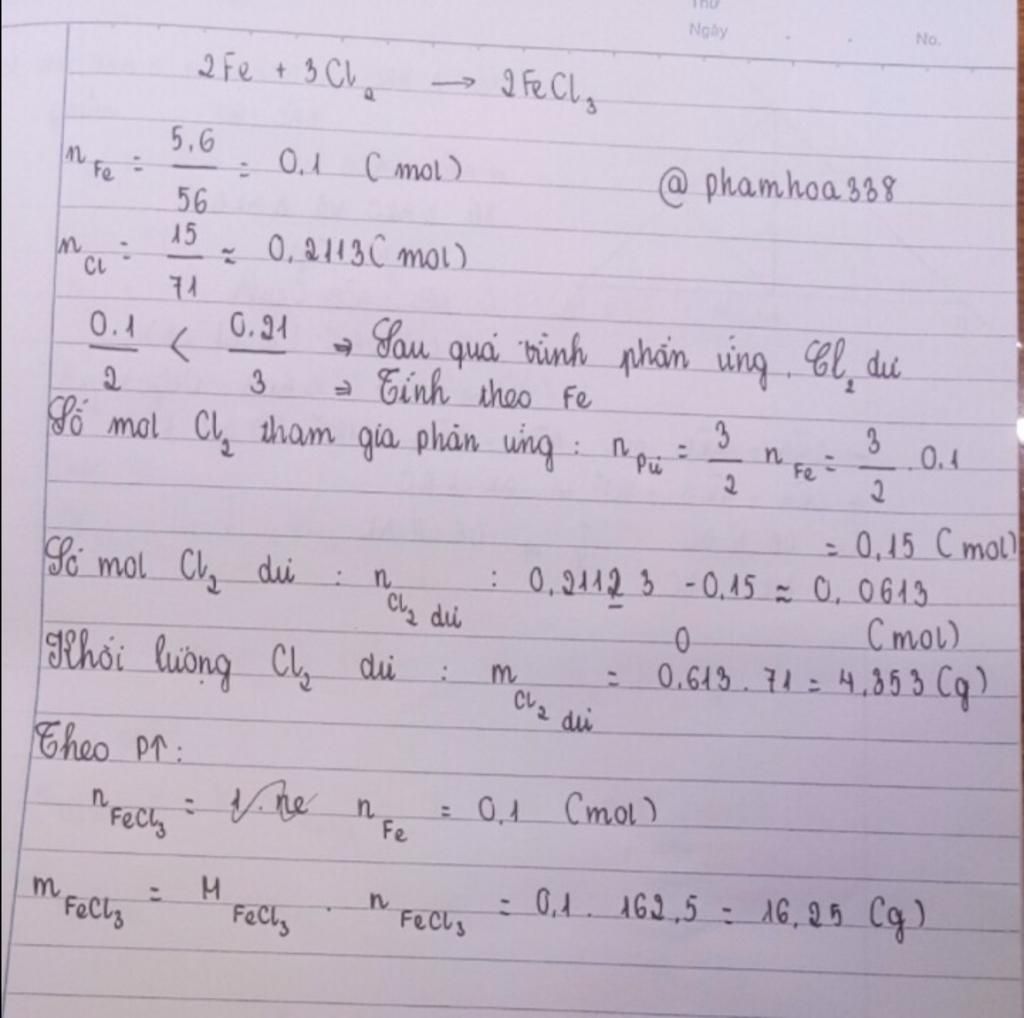 Thứ
Ngày . . No.
2Fe + 3Cl₂ → 2FeCl₃
n Fe = 5,6/56 = 0,1 (mol)
@ phamhoa338
n Cl = 15/71 ≈ 0,2113 (mol)
0.1/2 < 0.21/3 ⇒ Sau quá trình phản ứng. Cl₂ dư
⇒ Tính theo Fe
Số mol Cl₂ tham gia phản ứng : n pư = 3/2 n Fe = 3/2 . 0.1
= 0,15 (mol)
Số mol Cl₂ dư : n Cl₂ dư : 0,2112 3 - 0,15 ≈ 0,0613
0 (mol)
Khối lượng Cl₂ dư : m Cl₂ dư = 0.613 . 71 = 4,353 (g)
Theo PT :
n FeCl₃ = n Fe = 0,1 (mol)
m FeCl₃ = M FeCl₃ . n FeCl₃ = 0,1 . 162,5 = 16,25 (g)